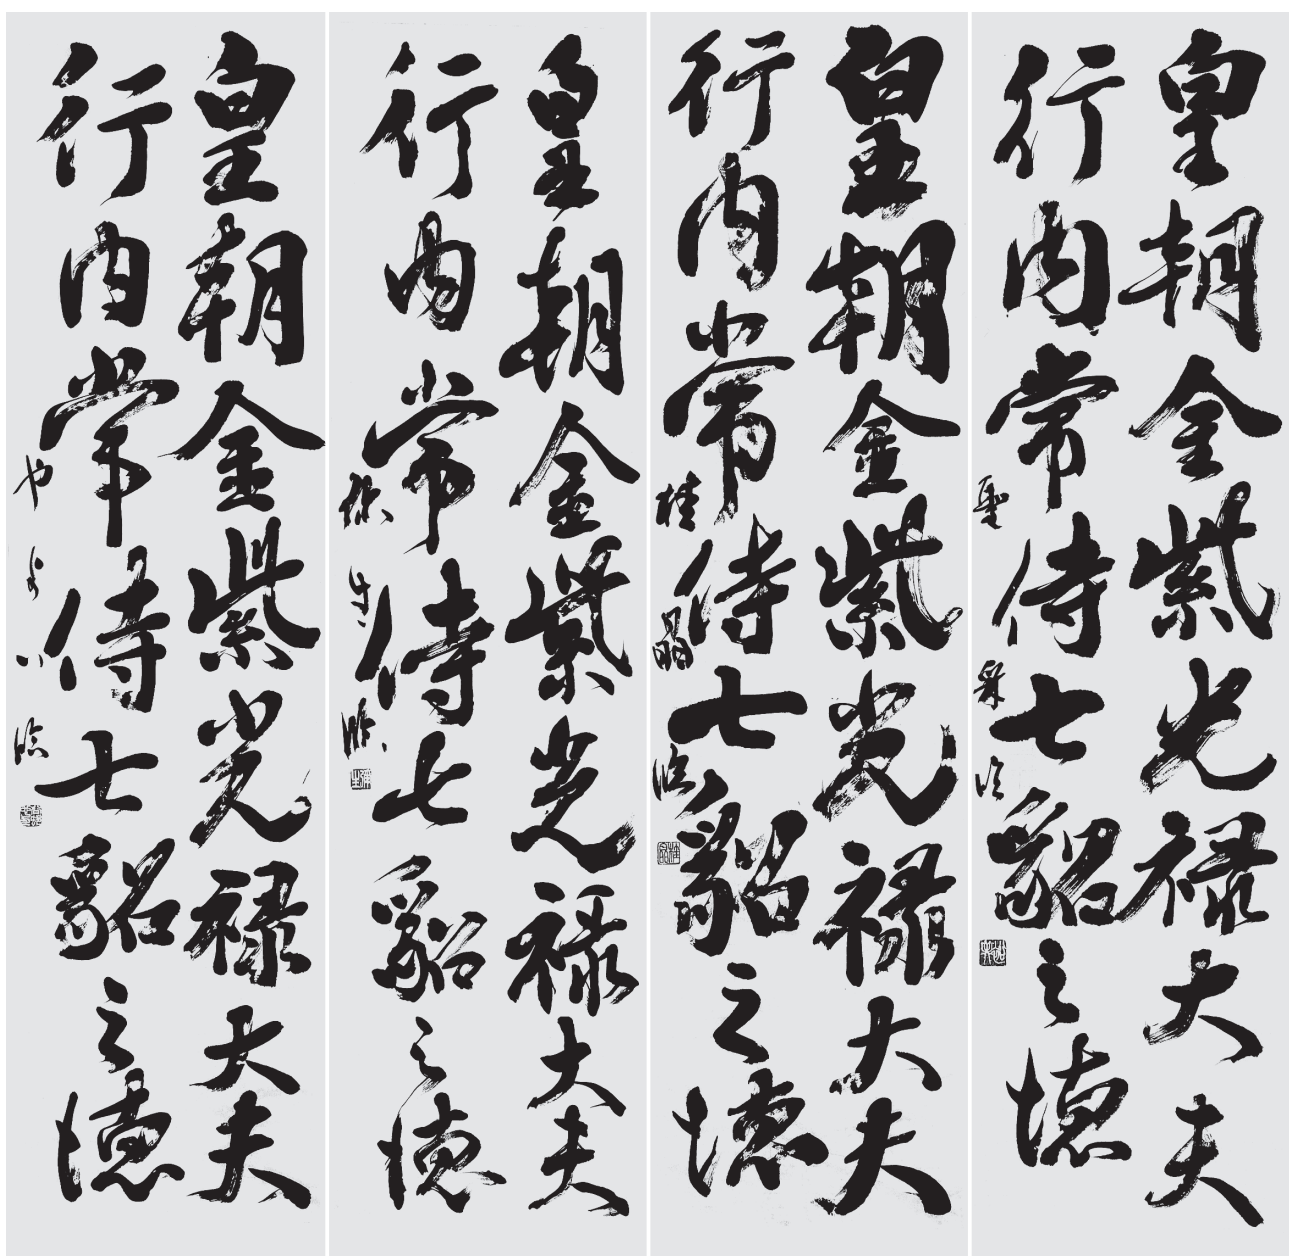 皇朝金紫光禄大夫
行内常侍七貂之徳
聖
臨
皇朝金紫光禄大夫
行内常侍七貂之徳
桂晶臨
皇朝金紫光禄大夫
行内常侍七貂之徳
弥生臨
皇朝金紫光禄大夫
行内常侍七貂之徳
臨